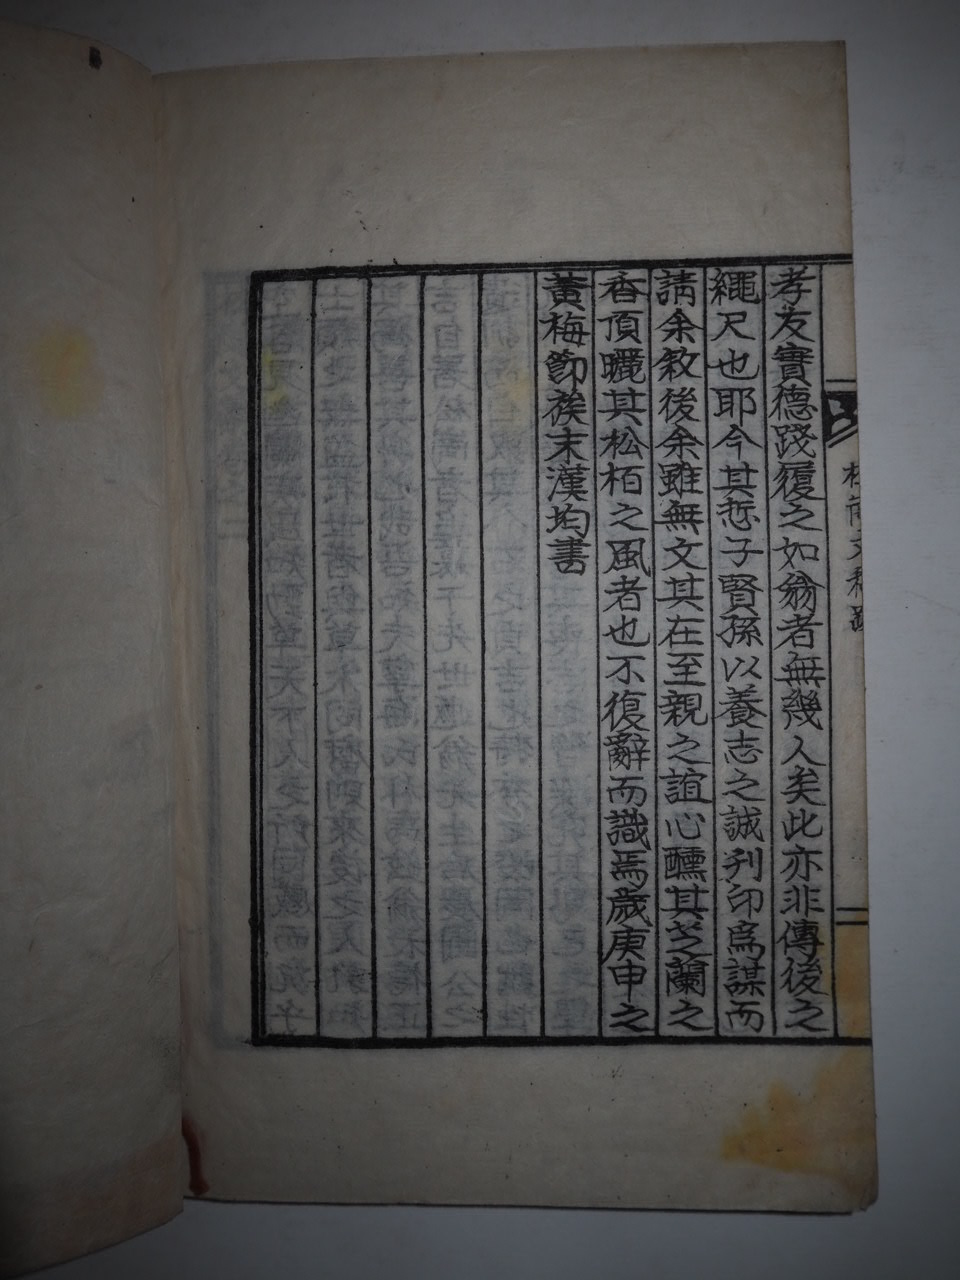 孝友實德踐履之如翁者無幾人矣此亦非傳後之
繩尺也耶今其悊子賢孫以養志之誠刋印爲謀而
請余敘後余雖無文其在至親之誼心醺其芝蘭之
香頂曬其松栢之風者也不復辭而識焉歲庚申之
黃梅節族末漢均書